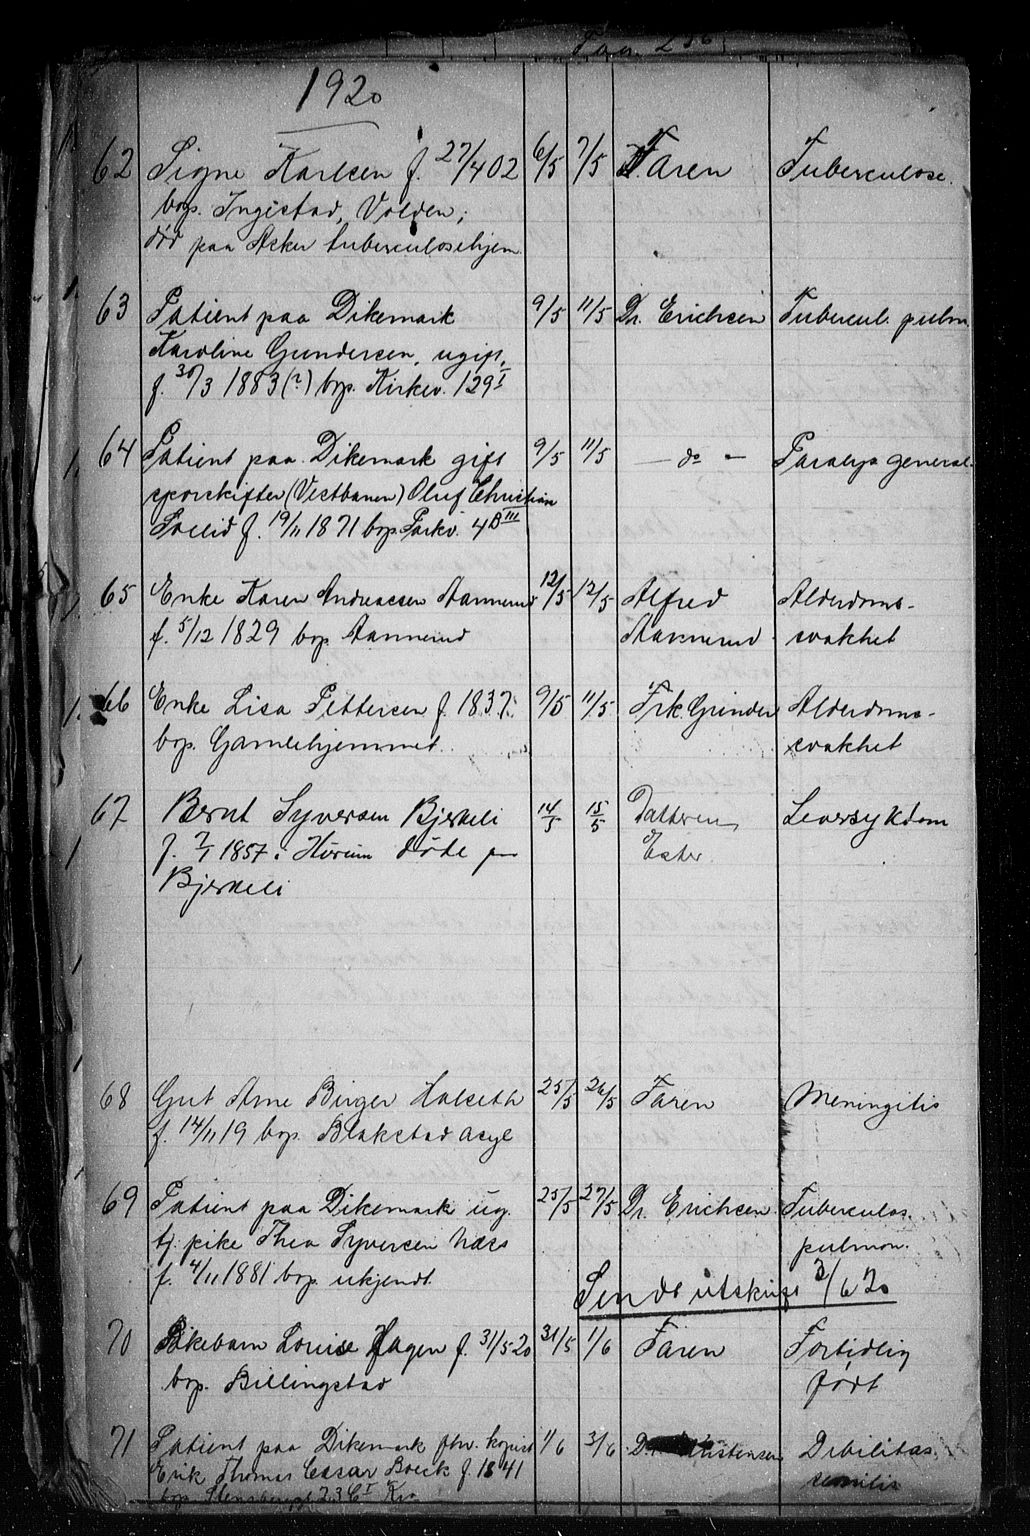 1920
62 Signe Karlsen f. 27/4 02 6/5 7/5 Faren Tuberculose.
bop. Ingistad, Volden;
død paa Aker tuberculosehjem
63 Patient paa Dikemark 9/5 11/5 Dr. Erichsen Tubercul. pulm.
Karoline Gundersen, ugift,
f. 30/3 1883(?) bop. Kirkev. 129 I
64 Patient paa Dikemark gift 9/5 11/5 — do — Paralys general.
sporskifter (Vestbanen) Oluf Christian
f. 19/11 1871 bop. Parkv. 4 B III
65 Enke Karen Andreasen Aannerud 12/5 12/5 Alfred Alderdoms-
f. 5/12 1829 bop. Aannerud Aannerud svakhet
66 Enke Lisa Pettersen f. 1837; 9/5 11/5 Frk. Grinder Alderdoms-
bop. Gamlehjemmet. svakhet
67 Bernt Syversen Bjerkeli 14/5 15/5 Datteren Leversykdom
f. 7/1 1857 i Hurum døde på Ester
Bjerkeli
68 Gut Arne Birger Halseth 25/5 26/5 Faren Meningitis
f. 14/11 19 bop. Blakstad asyl
69 Patient paa Dikemark ug. 25/5 27/5 Dr. Erichsen Tuberculos.
tj. pike Thea Syversen Næss pulmon.
f. 4/11 1881 bop. ukjendt.
Sendt utskrift 3/6 20
70 Pikebarn Louise Hagen f. 31/5 20 31/5 1/6 Faren Fortidlig
bop. Billingstad født
71 Patient paa Dikemark fhv. kopist 1/6 3/6 Dr. Kristensen Debilitas
Erik Thomas Cesar Boeck f. 1841 senilis
bop. Stensberggt. 23 C I Kra